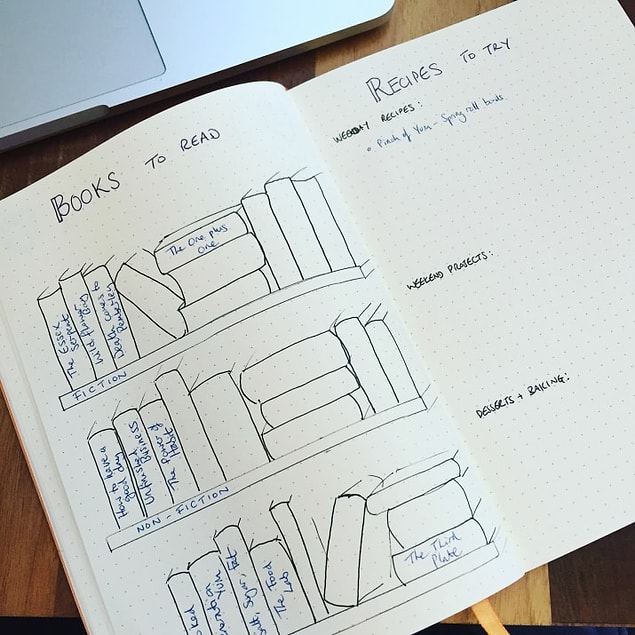 BOOKS TO READ
The Essex
Serpent
Wild Hundreds
Death comes to
Pemberley
The One plus
One
FICTION
How to have a
good day
Unfinished
Business
The Power of
Habit
NON-FICTION
Yum
Salt, Fat
The Food
Lab
The Third
Plate
RECIPES TO TRY
WEEKDAY RECIPES:
Pinch of Yum - Spring roll bowls
WEEKEND PROJECTS:
DESSERTS + BAKING: